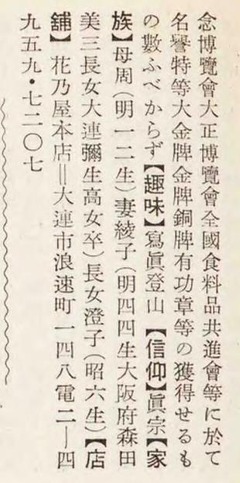 念博覽會大正博覽會全國食料品共進會等に於て
名譽特等大金牌金牌銅牌有功章等の獲得せるも
の數ふべからず【趣味】寫眞登山【信仰】眞宗【家
族】母周(明一二生)妻綾子(明四四生大阪府森田
美三長女大連彌生高女卒)長女澄子(昭六生)【店
舖】花乃屋本店=大連市浪速町一四八電二―四
九五九・七二〇七